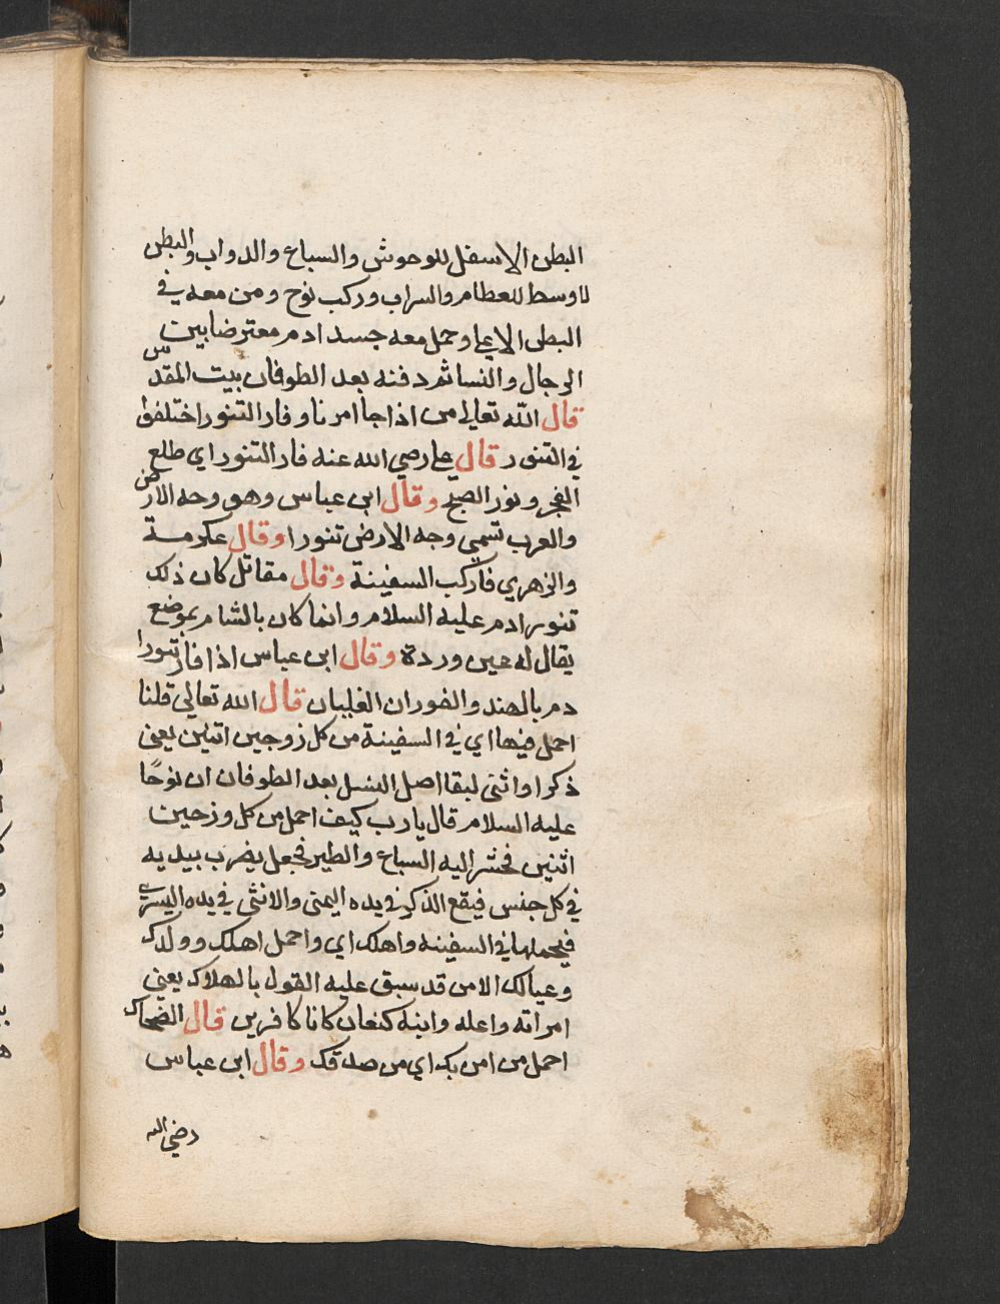 البطن الاسفل للوحوش والسباع والدواب والبطن
لاوسط للعطام والسراب وركب نوح ومن معه في
البطن الاعلا وحمل معه جسد ادم معترضا بين
الرجال والنسا ثم دفنه بعد الطوفان ببيت المقدس
قال الله تعالى حتى اذا جا امرنا وفار التنور اختلفوا
في التنور قال علي رضي الله عنه فار التنور اي طلع
الفجر ونور الصبح وقال ابن عباس وهو وجه الارض
والعرب تسمي وجه الارض تنورا وقال عكرمة
والزهري فاركب السفينة وقال مقاتل كان ذلك
تنور ادم عليه السلام وانما كان بالشام بموضع
يقال له عين وردة وقال ابن عباس اذا فار تنور ا
دم بالهند والفوران الغليان قال الله تعالى قلنا
احمل فيها اي في السفينة من كل زوجين اثنين يعني
ذكرا وانثى لبقا اصل النسل بعد الطوفان ان نوحًا
عليه السلام قال يا رب كيف احمل من كل وزجين
اثنين فحشر اليه السباع والطير فجعل يضرب بيديه
في كل جنس فيقع الذكر في يده اليمنى والانثى في يده اليسرى
فيحملها في السفينه واهلك اي واحمل اهلك وولدك
وعيالك الا من قد سبق عليه القول بالهلاك يعني
امراته واعله وابنه كنعان كانا كافرين قال الضحاك
احمل من امن بك اي من صدقك وقال ابن عباس
رضي الله